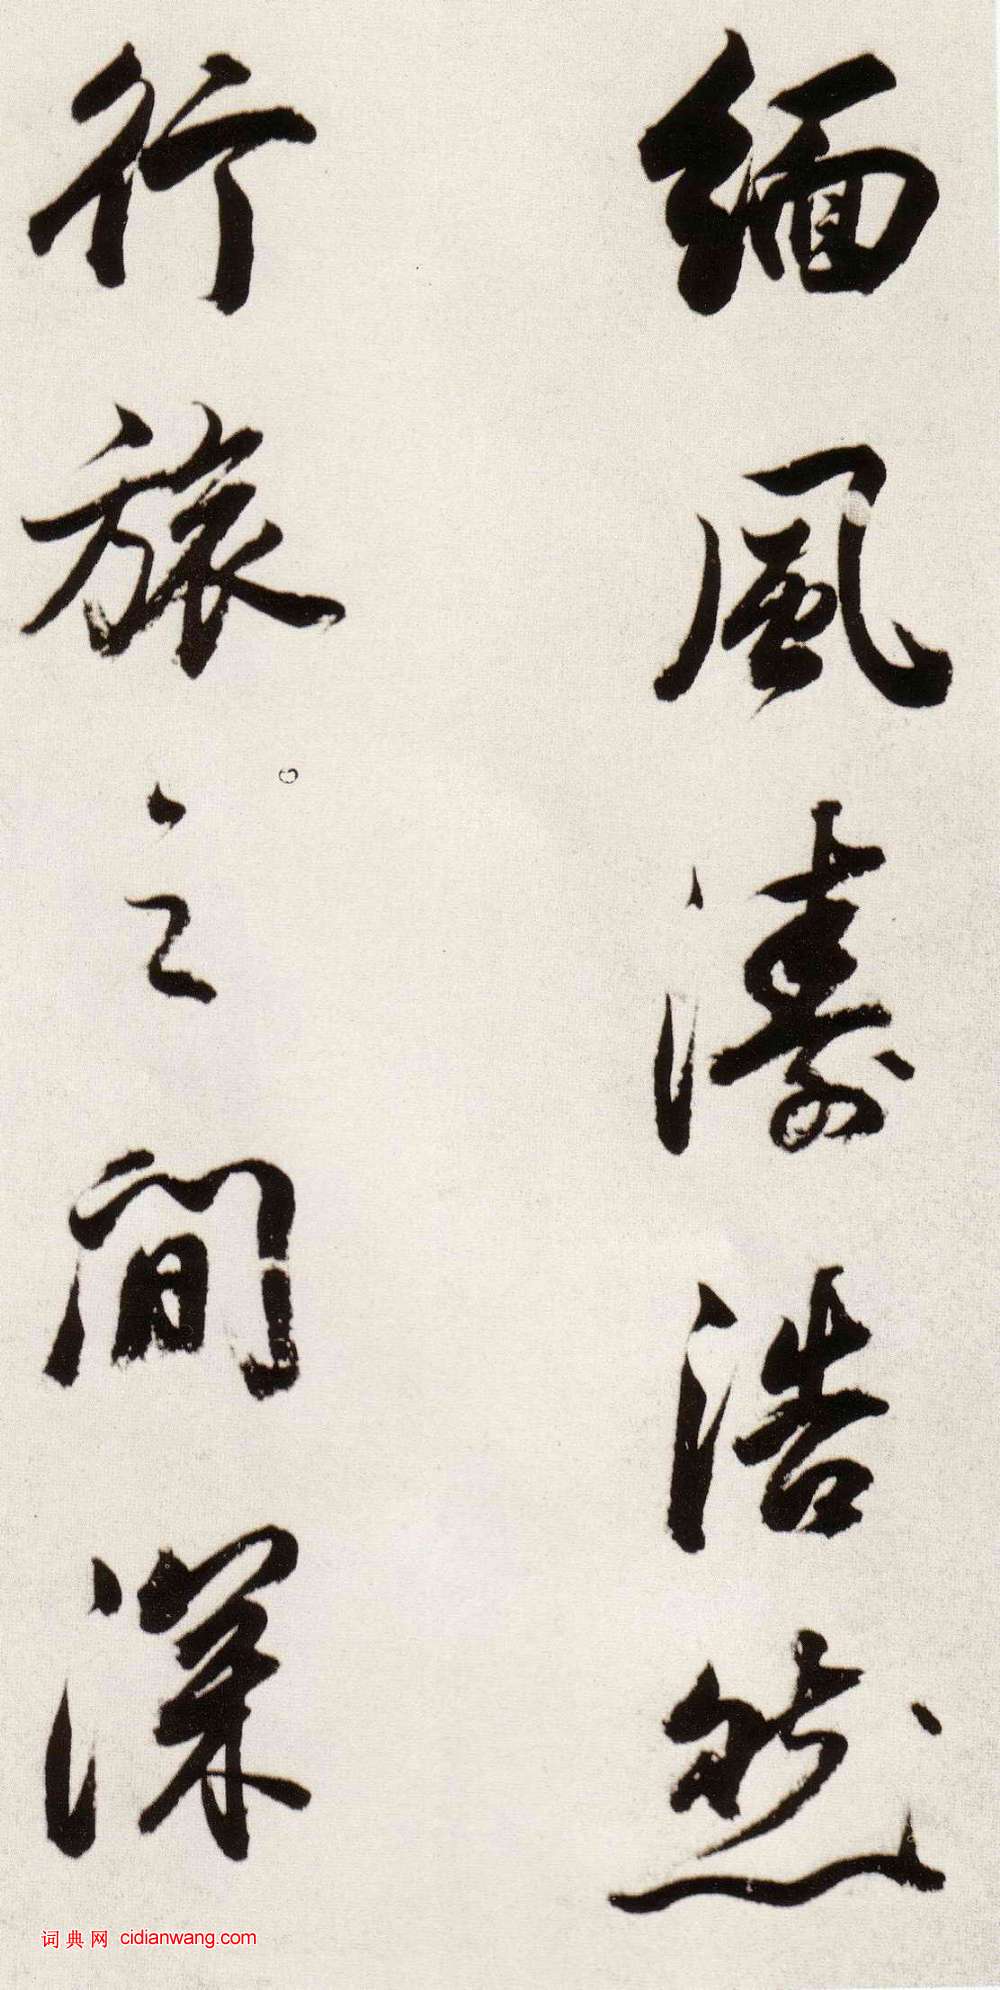 緬風濤浩然
行旅之間深
词典网 cidianwang.com